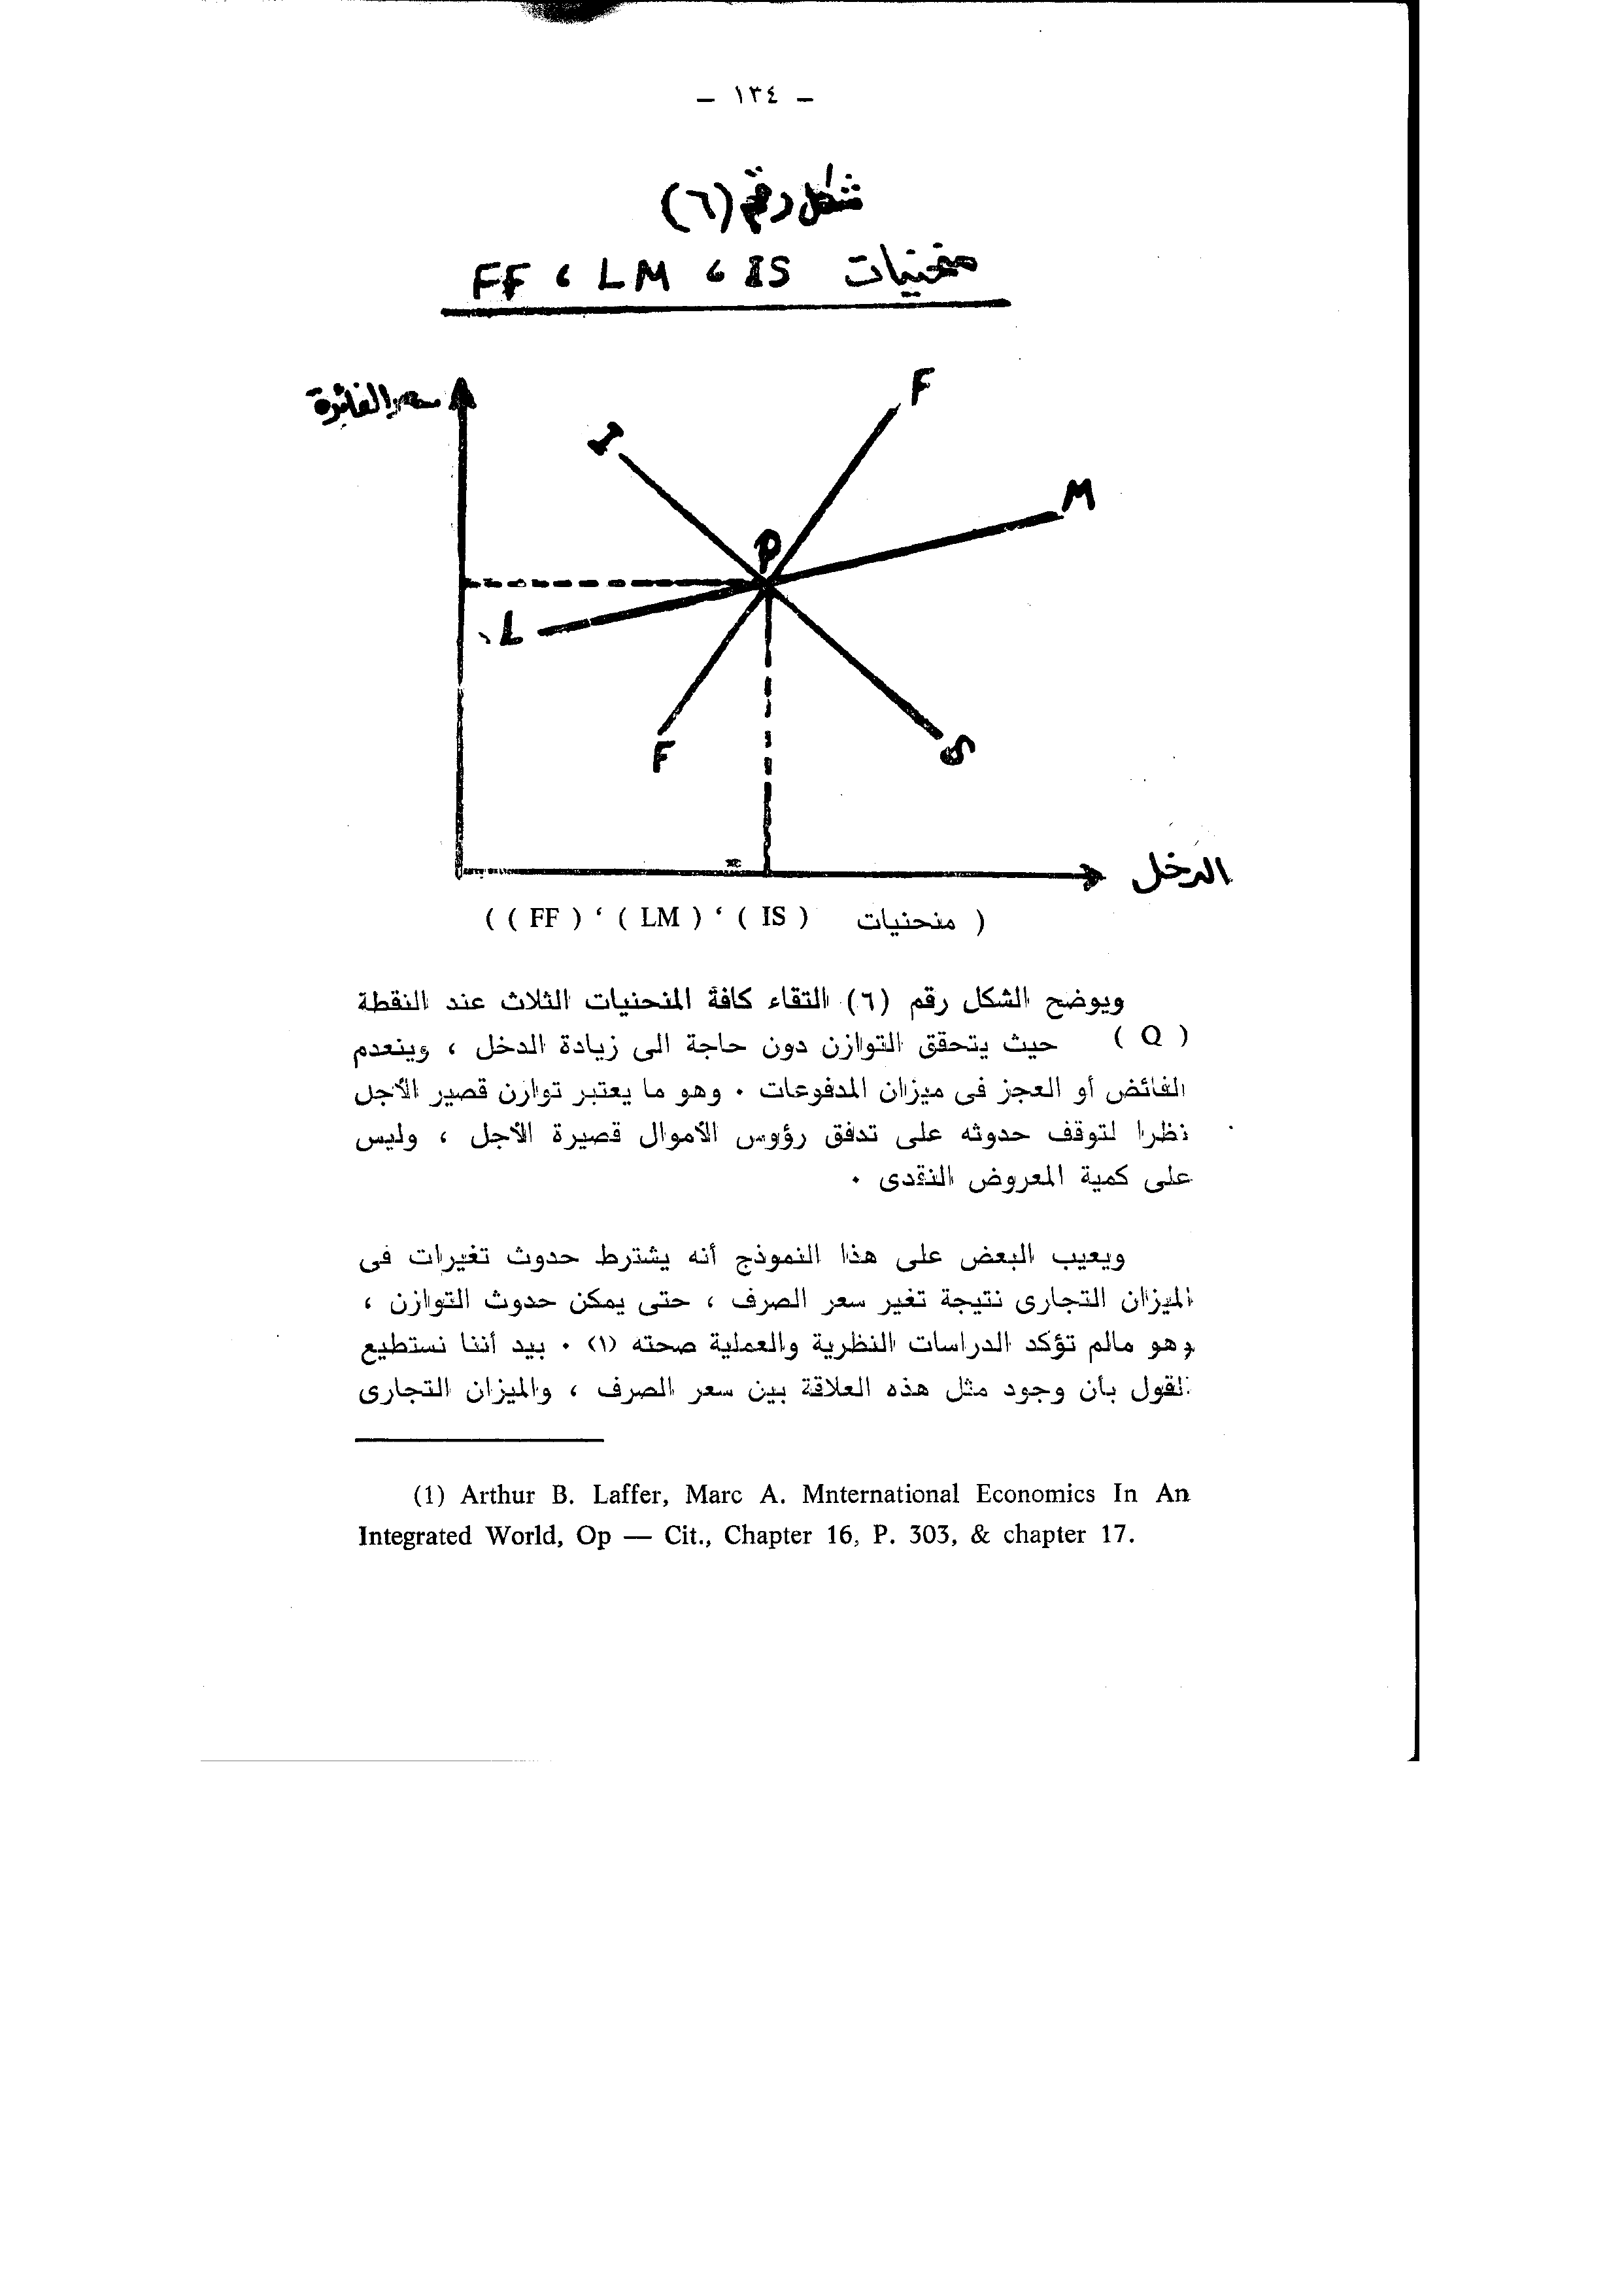 – ١٣٤ –
شكل رقم (٦)
منحنيات IS ، LM ، FF
سعر الفائدة
F
I
M
P
L
F
S
الدخل
( منحنيات ( IS ) ، ( LM ) ، ( FF ) )
ويوضح الشكل رقم (٦) التقاء كافة المنحنيات الثلاث عند النقطة
( Q ) حيث يتحقق التوازن دون حاجة الى زيادة الدخل ، وينعدم
الفائض أو العجز فى ميزان المدفوعات ٠ وهو ما يعتبر توارن قصير الأجل
نظرا لتوقف حدوثه على تدفق رؤوس الأموال قصيرة الأجل ، وليس
على كمية المعروض النقدى ٠
ويعيب البعض على هذا النموذج أنه يشترط حدوث تغيرات فى
الميزان التجارى نتيجة تغير سعر الصرف ، حتى يمكن حدوث التوازن ،
وهو مالم تؤكد الدراسات النظرية والعملية صحته (١) ٠ بيد أننا نستطيع
القول بأن وجود مثل هذه العلاقة بين سعر الصرف ، والميزان التجارى
(1) Arthur B. Laffer, Marc A. Mnternational Economics In An
Integrated World, Op — Cit., Chapter 16, P. 303, & chapter 17.